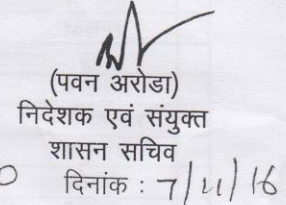 (पवन अरोडा)
निदेशक एवं संयुक्त
शासन सचिव
दिनांक : 7/11/16